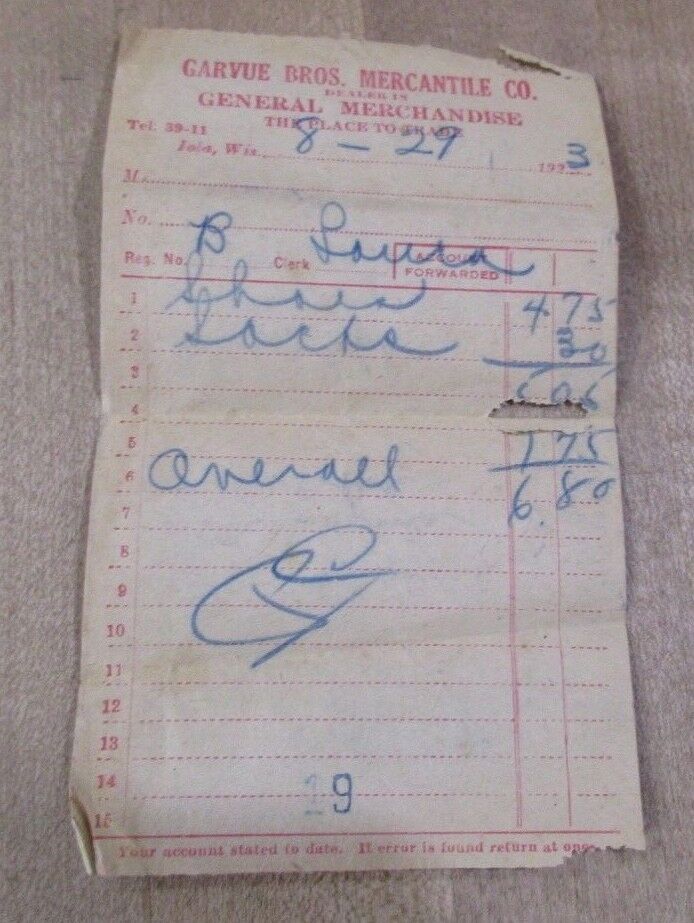 GARVUE BROS. MERCANTILE CO.
DEALER IN
GENERAL MERCHANDISE
THE PLACE TO TRADE
Tel. 39-11
Iola, Wis. 8 - 29 1923
M.
No.
B
Reg. No. Clerk ACCOUNT FORWARDED
1 Shoes 4 75
2 Socks 30
3 5 05
4
5 1 75
6 Overall
7 6.80
8
9
10
11
12
13
14
19
15
Your account stated to date. If error is found return at once